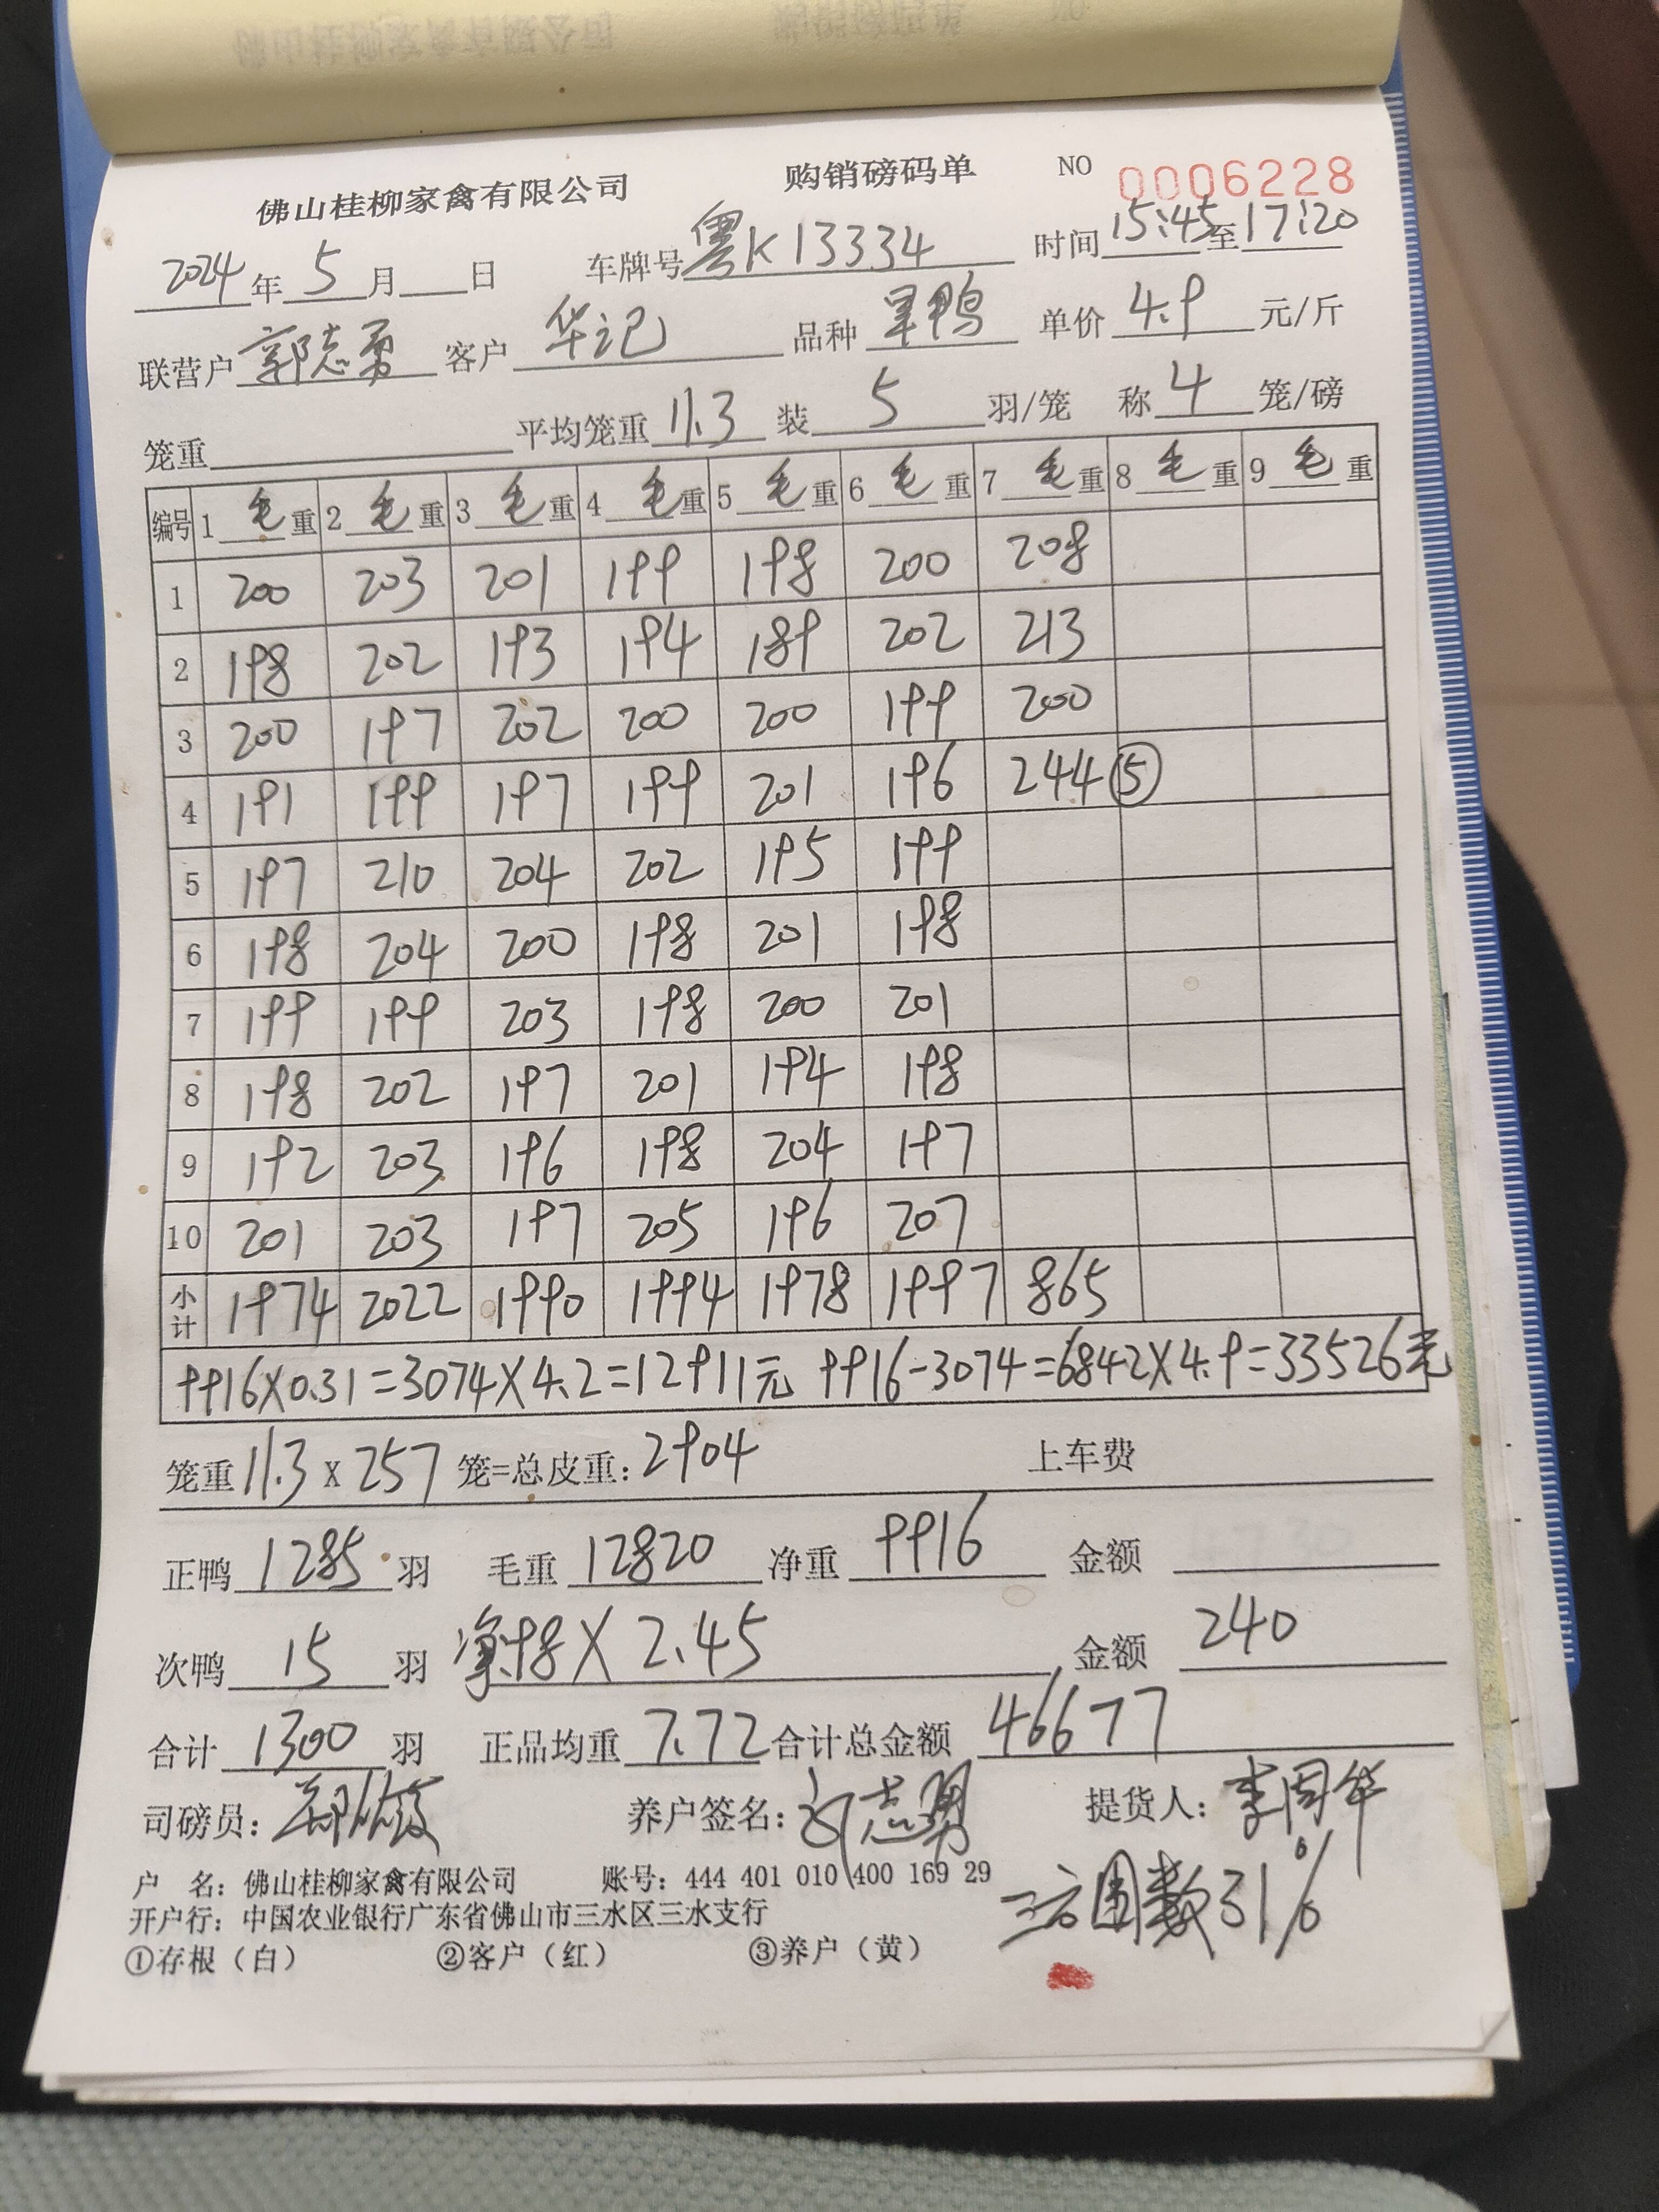 佛山桂柳家禽有限公司 购销磅码单 NO 0006228
2024年5月 日 车牌号粤K13334 时间15:45至17:20
联营户郭志勇 客户华记 品种旱鸭 单价4.9元/斤
笼重 平均笼重11.3 装5羽/笼 称4笼/磅
编号 1毛重 2毛重 3毛重 4毛重 5毛重 6毛重 7毛重 8毛重 9毛重
1 200 203 201 199 198 200 208
2 198 202 193 194 189 202 213
3 200 197 202 200 200 199 200
4 191 199 197 199 201 196 244⑤
5 197 210 204 202 195 199
6 198 204 200 198 201 198
7 199 199 203 198 200 201
8 198 202 197 201 194 198
9 192 203 196 198 204 197
10 201 203 197 205 196 207
小计 1974 2022 1990 1994 1978 1997 865
9916×0.31=3074×4.2=12911元 9916-3074=6842×4.9=33526元
笼重11.3×257笼=总皮重:2904 上车费
正鸭1285羽 毛重12820 净重9916 金额
次鸭15羽 净98×2.45 金额240
合计1300羽 正品均重7.72 合计总金额46677
司磅员: 养户签名:郭志勇 提货人:李周华
户 名:佛山桂柳家禽有限公司 账号:444 401 010 400 169 29
开户行:中国农业银行广东省佛山市三水区三水支行
数31%
①存根(白) ②客户(红) ③养户(黄)